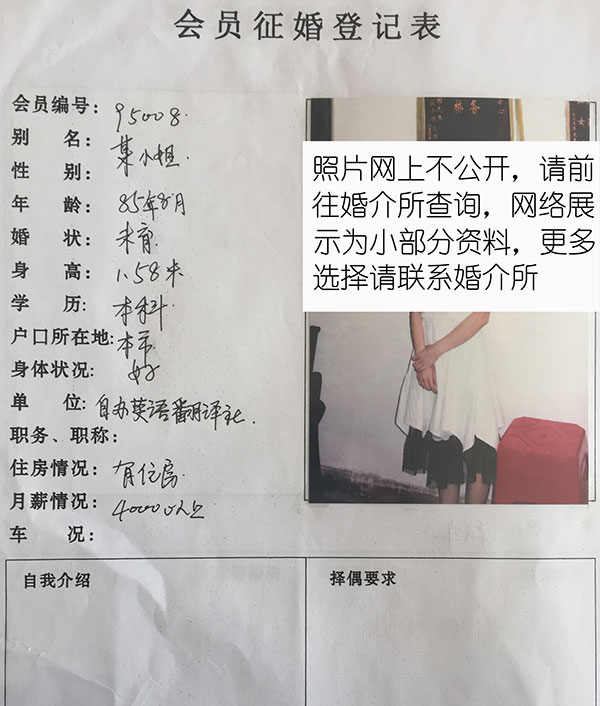 会员征婚登记表
会员编号: 95008
别 名: 某小姐.
性 别:
年 龄: 85年8月
婚 状: 未育.
身 高: 1.58米
学 历: 本科.
户口所在地: 本市
身体状况: 好
单 位: 自办英语翻译社.
职务、职称:
住房情况: 有住房
月薪情况: 4000以上
车 况:
自我介绍
择偶要求
照片网上不公开，请前
往婚介所查询，网络展
示为小部分资料，更多
选择请联系婚介所